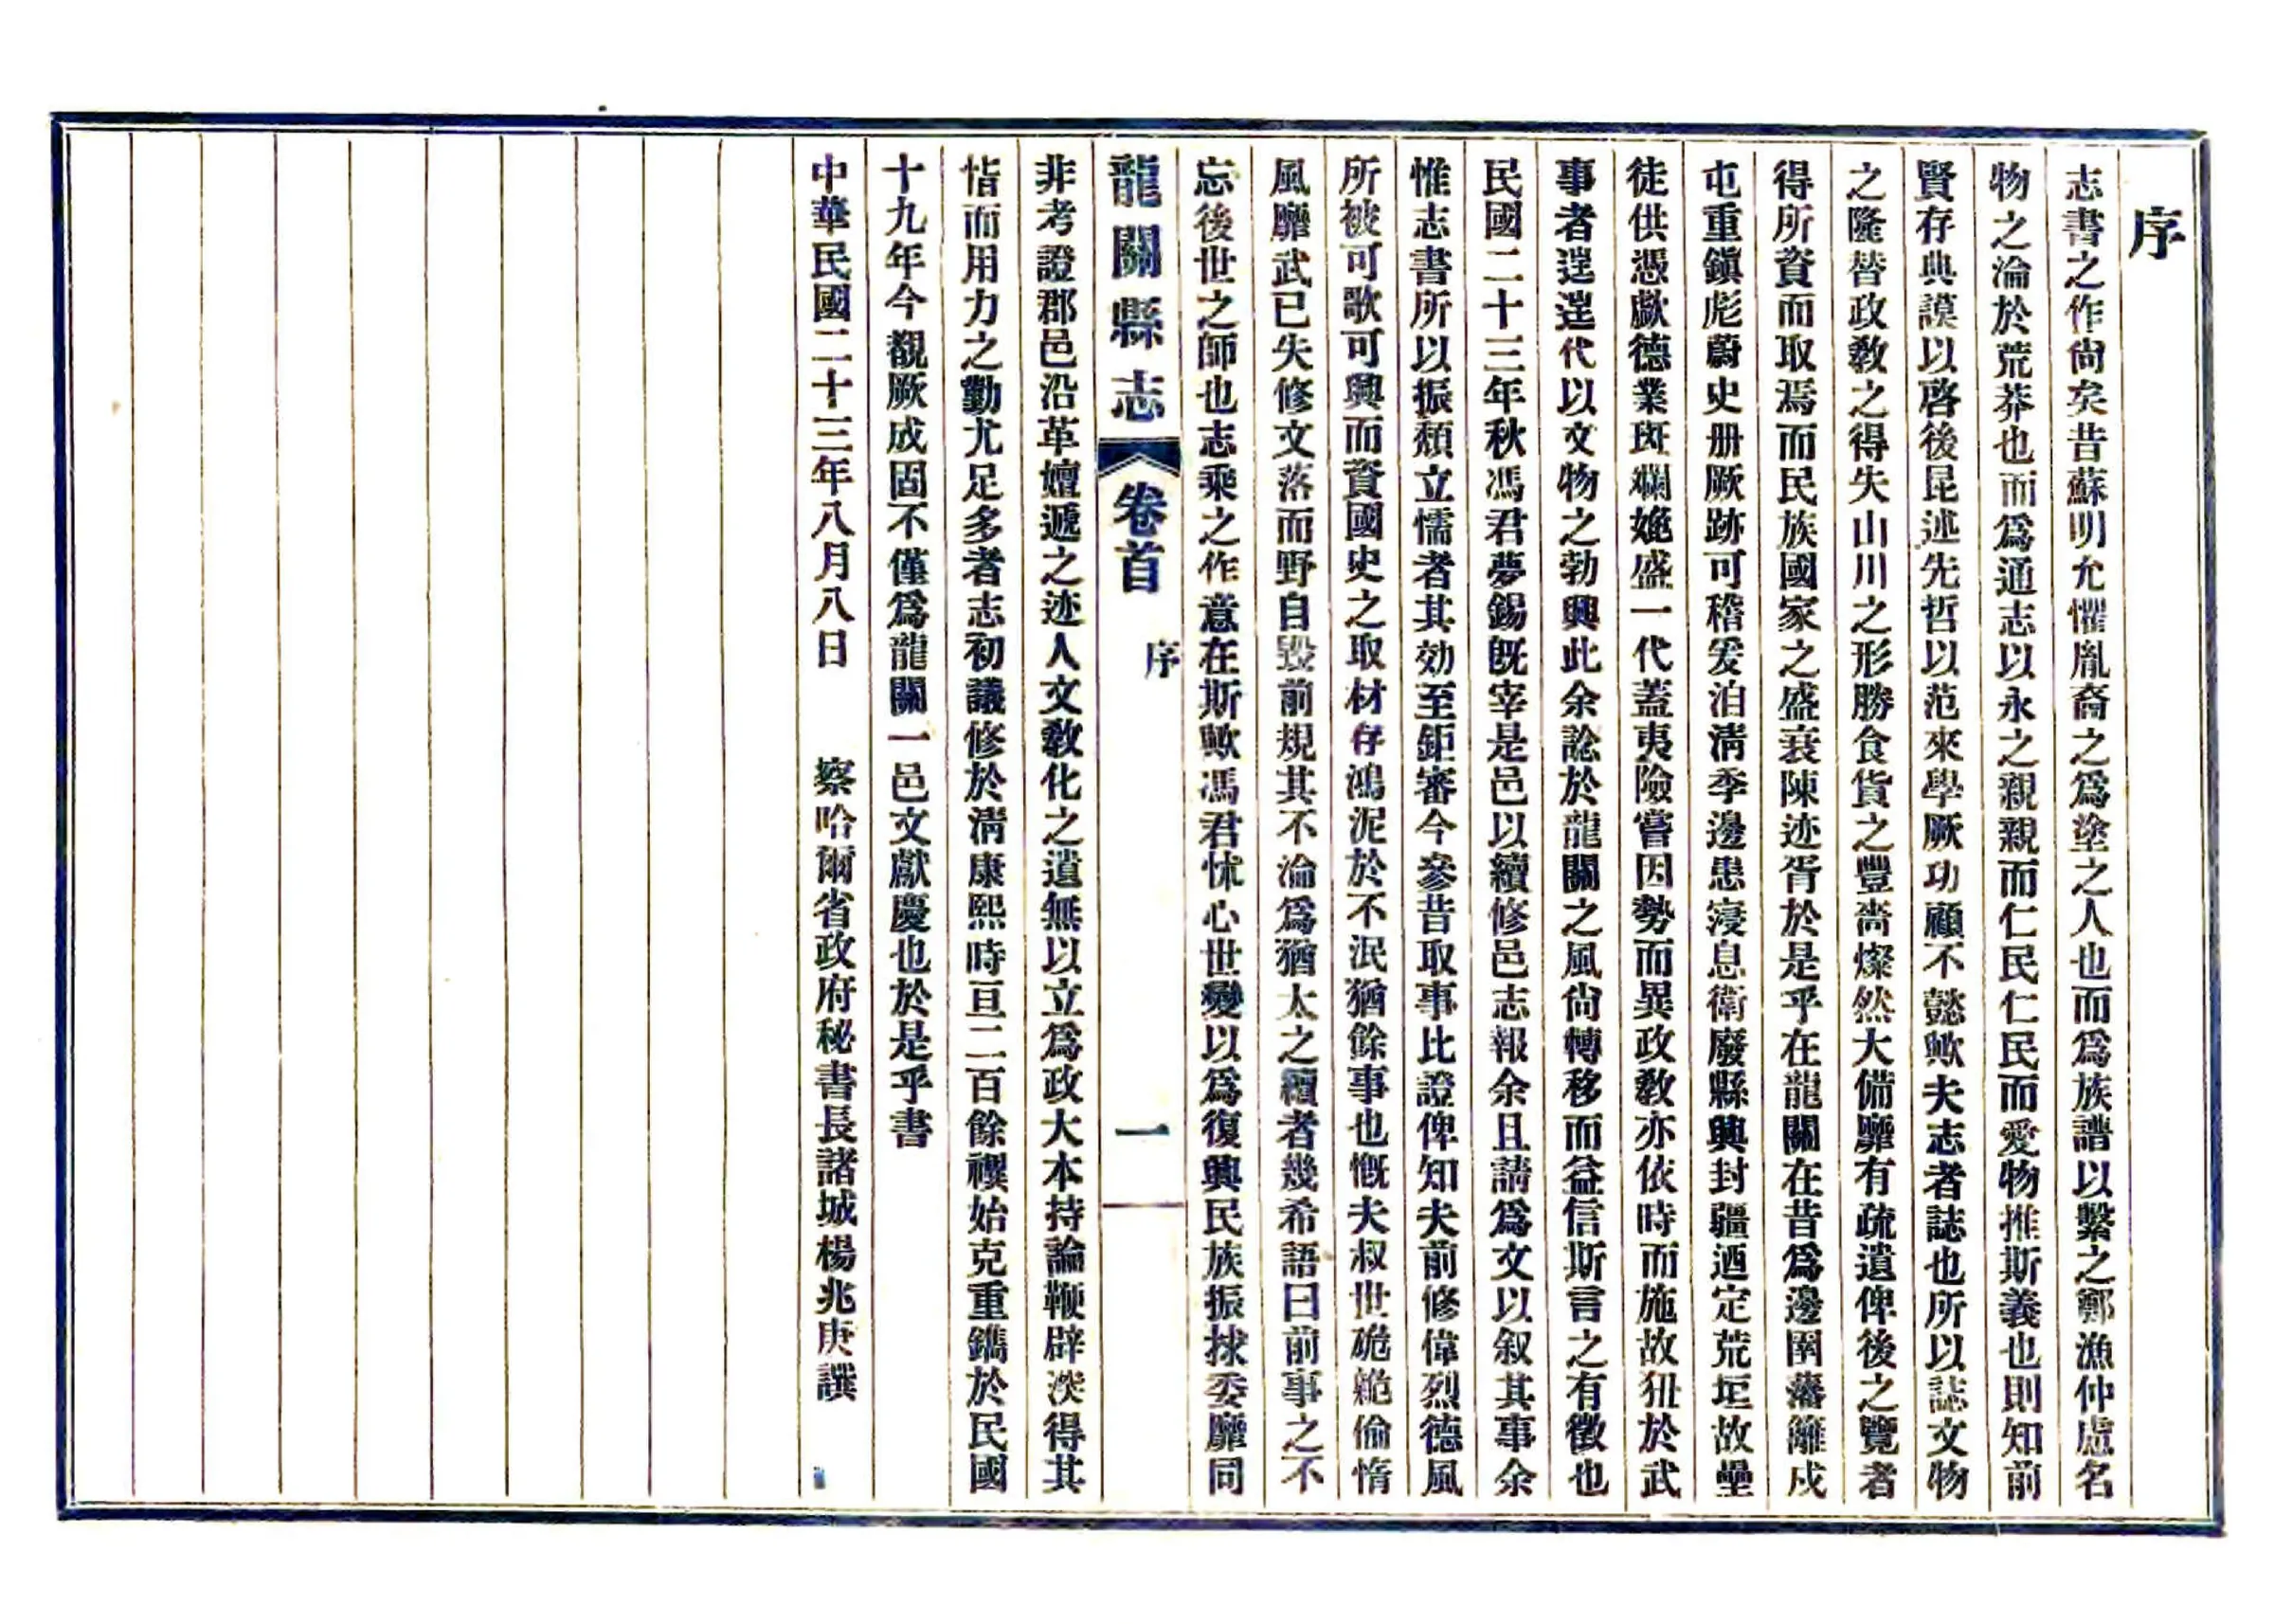 序
志書之作尙矣昔蘇明允懼胤裔之爲塗之人也而爲族譜以繫之鄭漁仲虛名
物之淪於荒莽也而爲通志以永之親親而仁民仁民而愛物推斯義也則知前
賢存典謨以啓後昆述先哲以范來學厥功顧不懿歟夫志者誌也所以誌文物
之隆替政教之得失山川之形勝食貨之豐嗇燦然大備靡有疏遺俾後之覽者
得所資而取焉而民族國家之盛衰陳迹胥於是乎在龍關在昔爲邊圉藩籬戍
屯重鎭彪蔚史册厥跡可稽爰洎淸季邊患寖息衛廢縣興封疆迺定荒垣故壘
徒供憑歔德業斑斕娩盛一代蓋夷險嘗因勢而異政敎亦依時而施故狃於武
事者逞逞代以文物之勃興此余諗於龍關之風尙轉移而益信斯言之有徵也
民國二十三年秋馮君夢錫旣宰是邑以續修邑志報余且請爲文以叙其事余
惟志書所以振頹立懦者其効至鉅審今參昔取事比證俾知夫前修偉烈德風
所被可歌可興而資國史之取材存鴻泥於不泯猶餘事也慨夫叔世硊䠷偷惰
風靡武已失修文落而野自毀前規其不淪爲猶太之續者幾希語曰前事之不
忘後世之師也志乘之作意在斯歟馮君怵心世變以爲復興民族振捄委靡同
龍關縣志 卷首 序 一
非考證郡邑沿革嬗遞之迹人文敎化之遺無以立爲政大本持論鞭辟湥得其
恉而用力之勤尤足多者志初議修於淸康熙時亘二百餘禩始克重鐫於民國
十九年今覩厥成固不僅爲龍關一邑文獻慶也於是乎書
中華民國二十三年八月八日 察哈爾省政府秘書長諸城楊兆庚譔